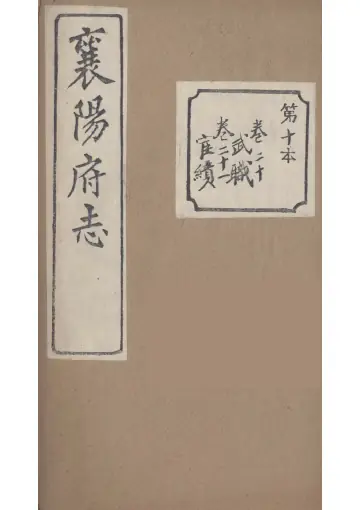 襄陽府志
第十本
卷二十
武職
卷二十一
宦績